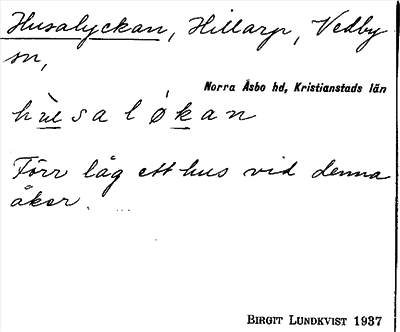 Husalyckan, Hillarp, Vedby
sn,
Norra Åsbo hd, Kristianstads län
Förr låg ett hus vid denna
åker.
BIRGIT LUNDKVIST 1937